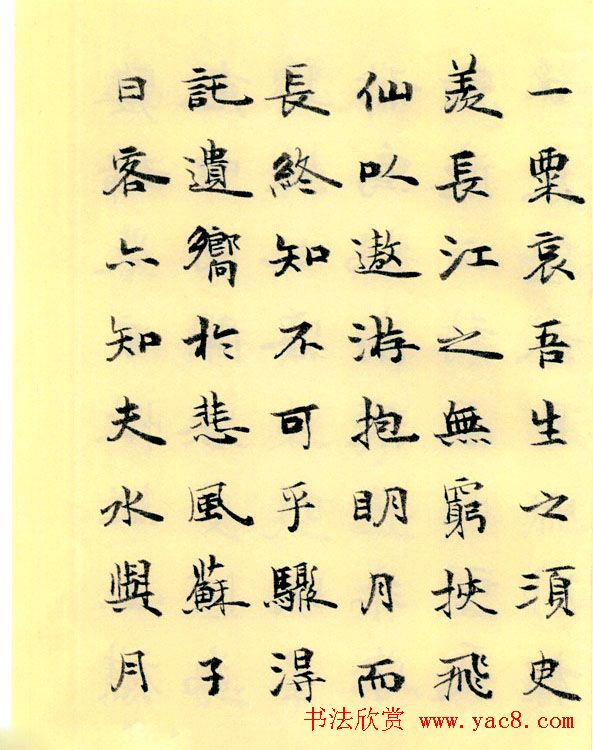 一粟哀吾生之須臾
羨長江之無窮挾飛
仙以遨游抱明月而
長終知不可乎驟得
託遺響於悲風蘇子
曰客亦知夫水與月
书法欣赏 www.yac8.com